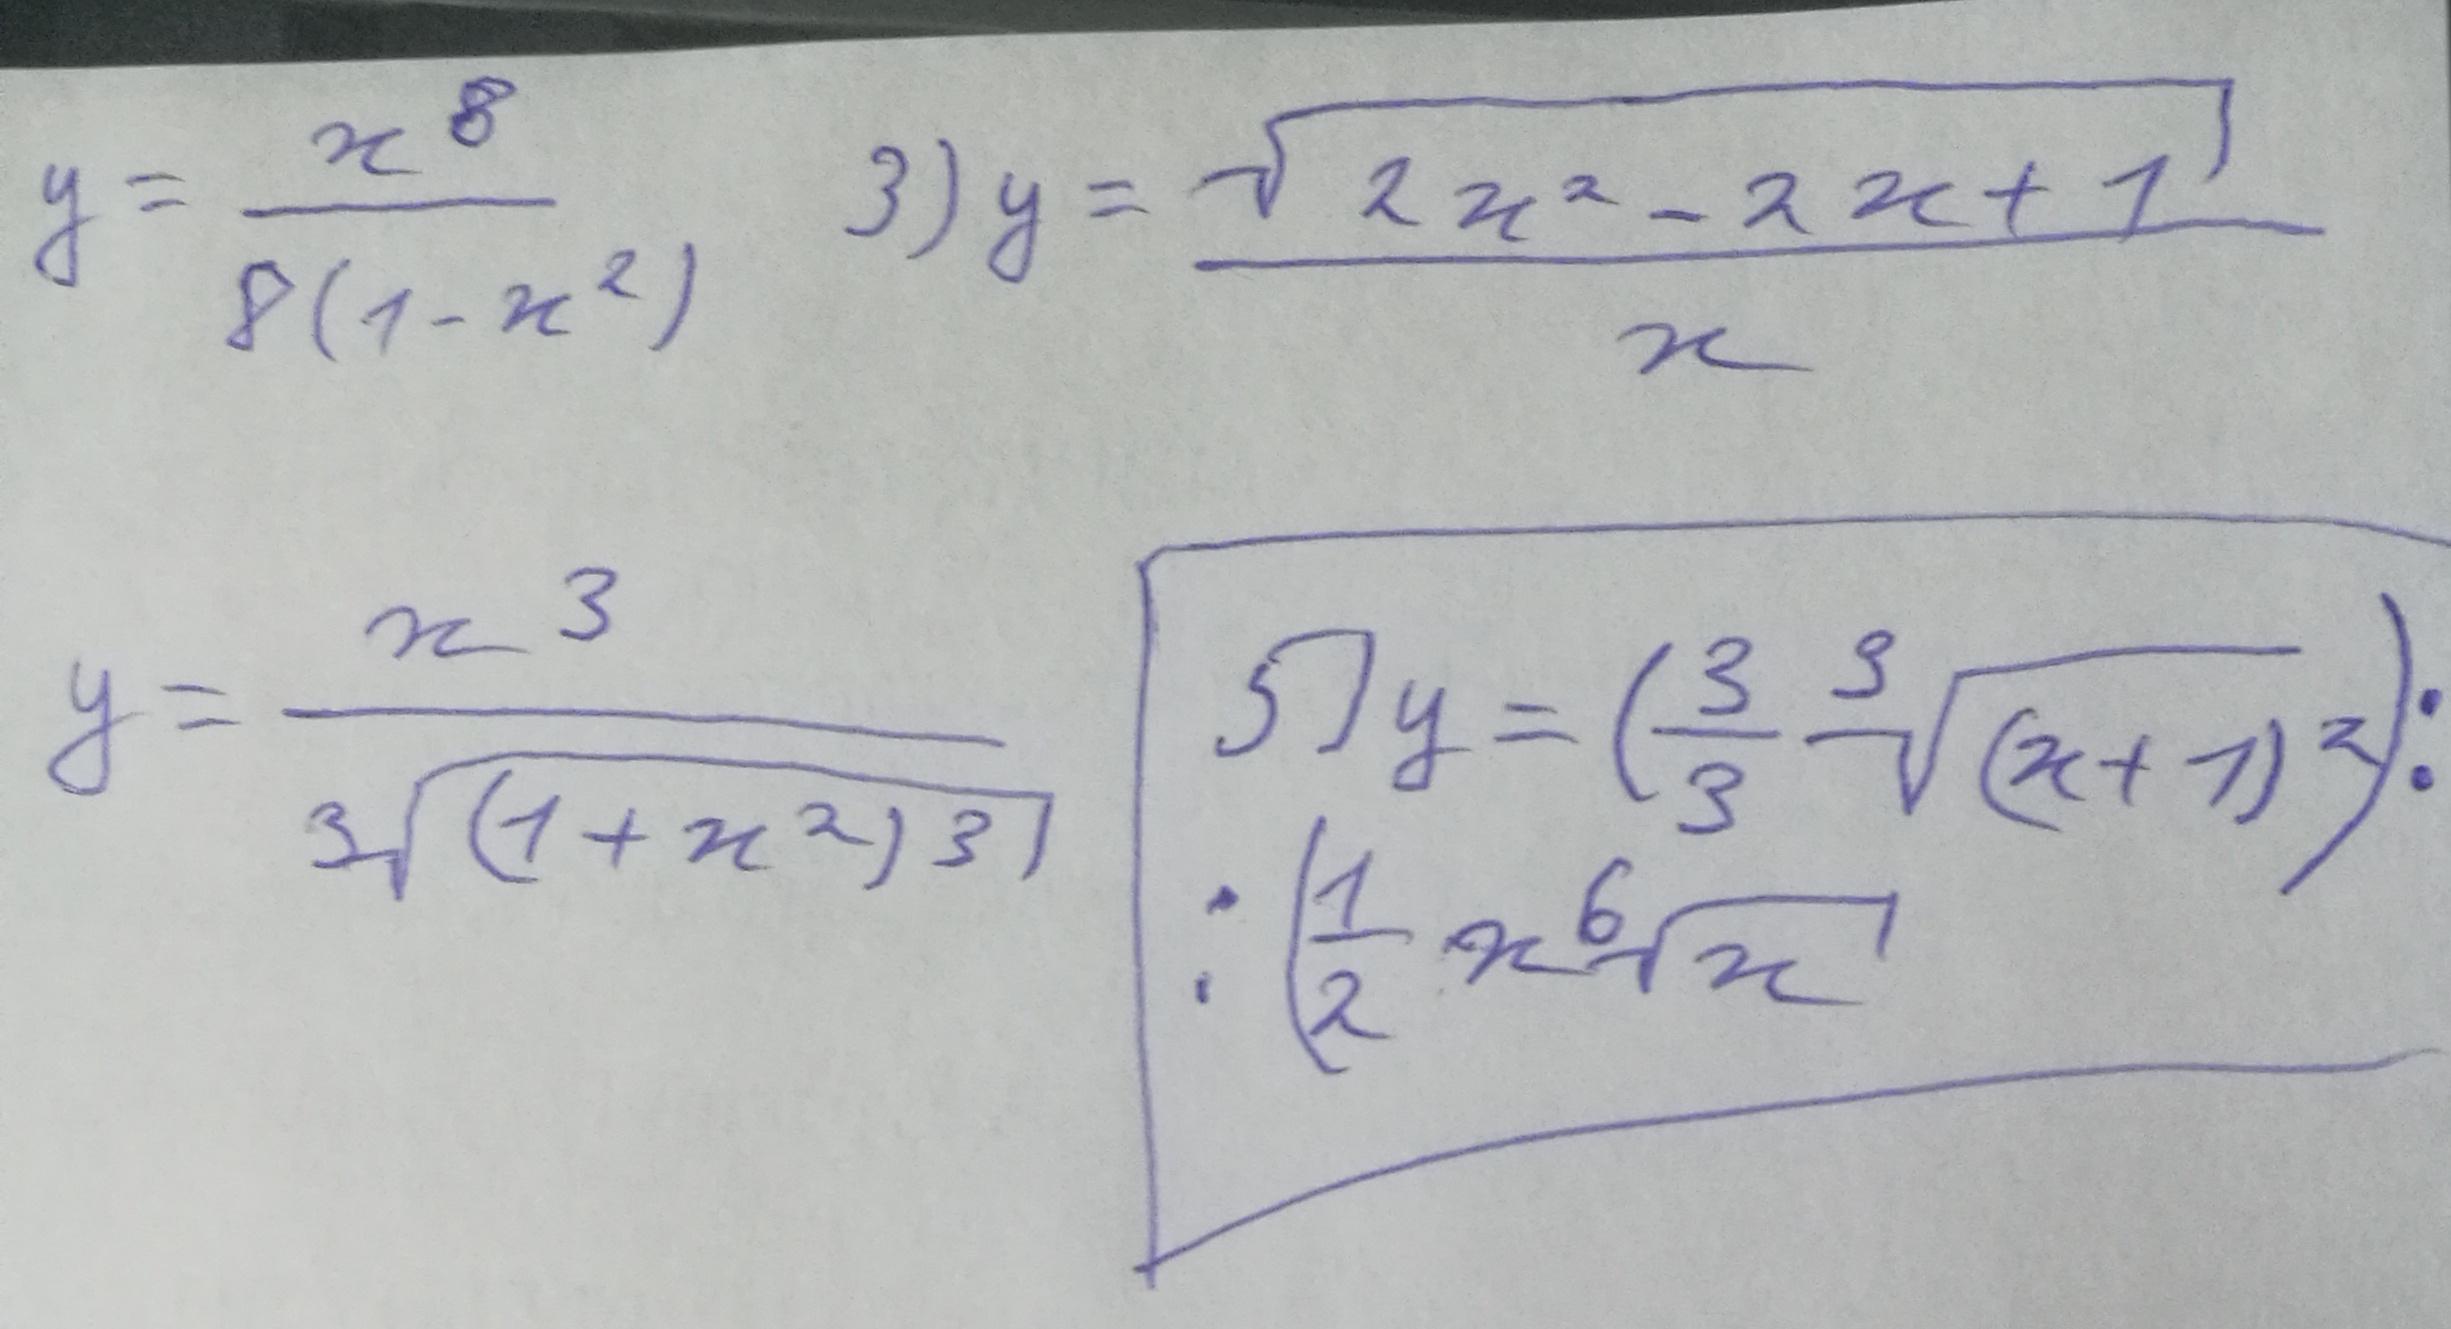 y = x⁸ / 8(1-x²)
3) y = √(2x²-2x+1) / x
y = x³ / ³√((1+x²)3)
5) y = (3/3 ³√((x+1)²) :
: (1/2 x ⁶√x